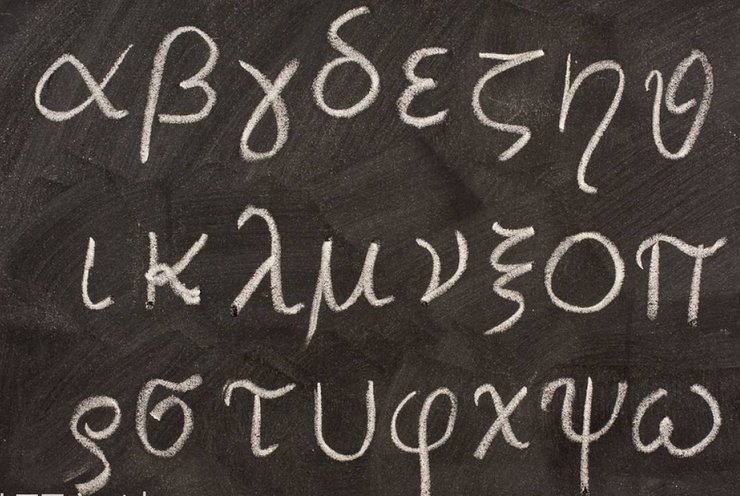 αβγδεζηϑ
ικλμνξοπ
ρστυφχψω